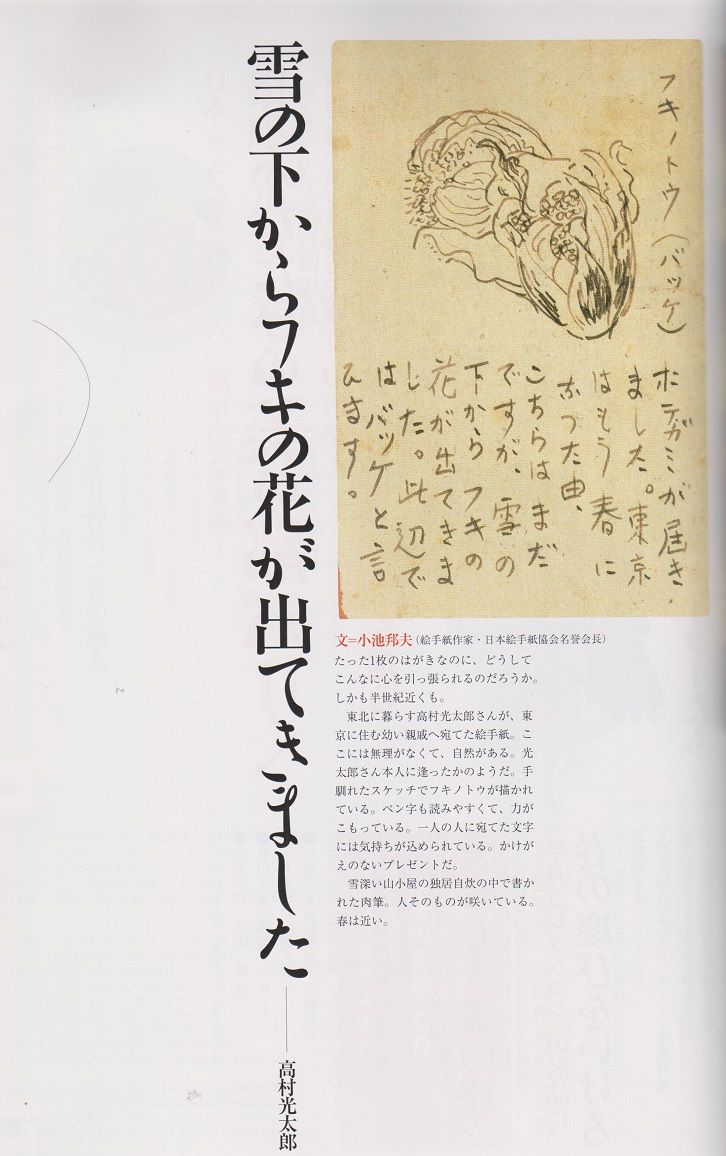 フキノトウ(バッケ)
オテガミが届き
ました。東京
はもう春に
なつた由、
こちらはまだ
ですが、雪の
下からフキの
花が出てきま
した。此辺で
はバッケと言
ひます。
雪の下からフキの花が出てきました──高村光太郎
文=小池邦夫(絵手紙作家・日本絵手紙協会名誉会長)
たった1枚のはがきなのに、どうして
こんなに心を引っ張られるのだろうか。
しかも半世紀近くも。
　東北に暮らす高村光太郎さんが、東
京に住む幼い親戚へ宛てた絵手紙。こ
こには無理がなくて、自然がある。光
太郎さん本人に逢ったかのようだ。手
馴れたスケッチでフキノトウが描かれ
ている。ペン字も読みやすくて、力が
こもっている。一人の人に宛てた文字
には気持ちが込められている。かけが
えのないプレゼントだ。
　雪深い山小屋の独居自炊の中で書か
れた肉筆。人そのものが咲いている。
春は近い。